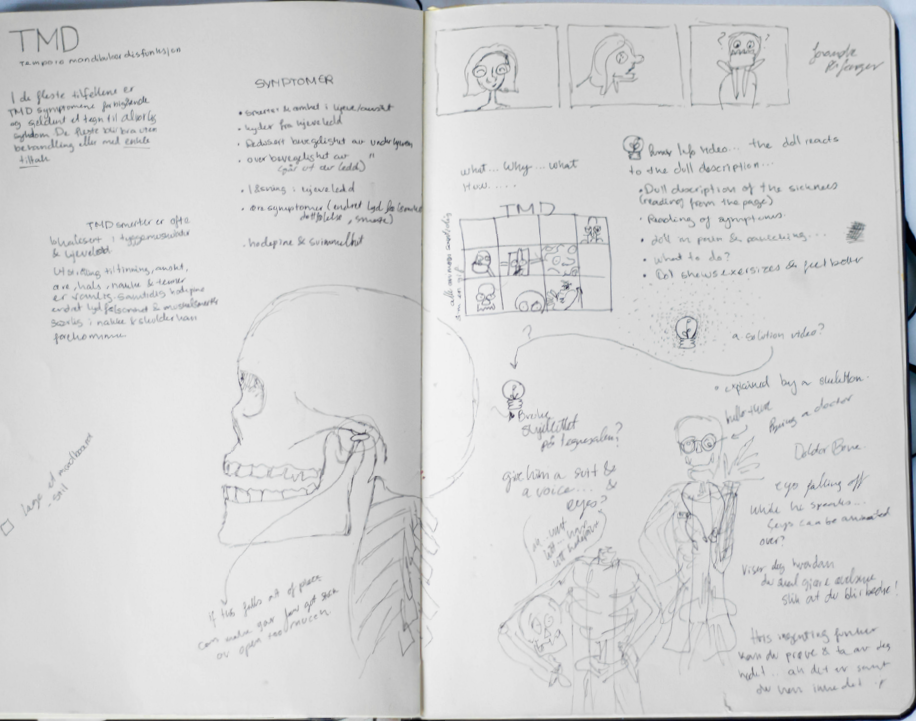 TMD
Temporo mandibular disfunksjon
I de fleste tilfellene er
TMD symptomene forbigående
og sjeldent et tegn til alvorlig
sykdom. De fleste blir bra uten
behandling eller med enkle
tiltak
SYMPTOMER
• smerte & ømhet i kjeve/ansikt
• lyder fra kjeveledd
• Redusert bevegelighet av underkjeven
• over bevegelighet av "
(går ut av ledd)
• låsning i kjeveledd
• øresymptomer (endret lyd
dottfølelse, smerte)
• hodepine & svimmelhet
TMD smerter er ofte
lokalisert i tyggemuskler
& kjeveledd
Utstråling til tinning, ansikt,
øre, hals, nakke & tenner
er vanlig. Samtidig hodepine
endret lydfølsomhet & muskelsmerte
særlig i nakke & skulder kan
forekomme
Lage et moodboard
- stil
If this falls out of place,
can make your jaw get stuck
or open too much
what... Why... what
How.....
TMD
Info video... the doll reacts
to the doll description...
• Doll description of the sickness
(reading from the page)
• Reading of symptoms
• doll in pain & panicking...
• What to do?
• Doll shows exersizes & feel better
?
a solution video?
• explained by a skeleton.
Bruke
skjelettet
på tegnesalen?
give him a suit &
a voice... &
eyes?
being a doctor
Doktor Bone.
eye falling off
while he speaks...
Eyes can be animated
over?
Viser deg hvordan
du skal gjøre øvelsene
slik at du blir bedre!
Hvis ingenting funker
kan du prøve å ta av deg
hodet... ah det er sant
du kan ikke det